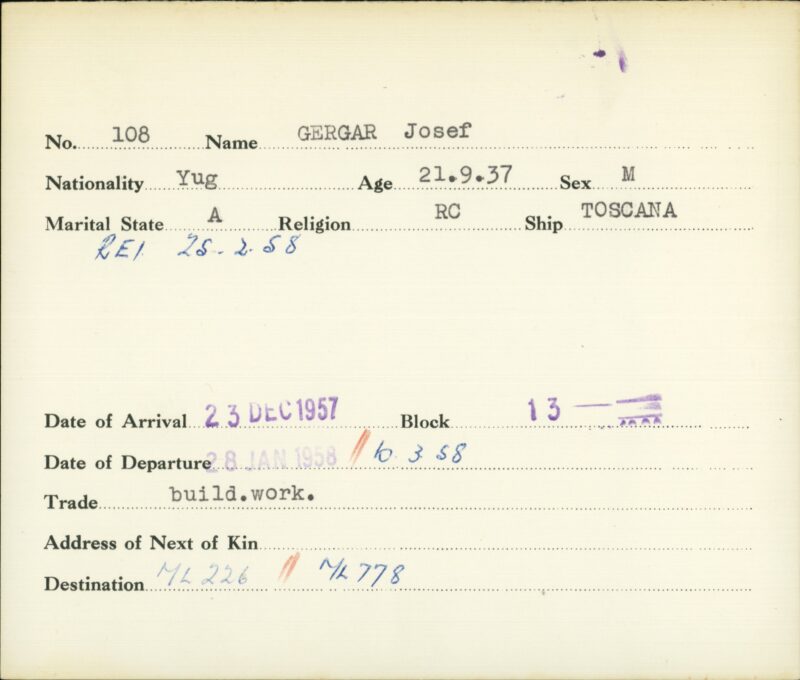 No. 108 Name GERGAR Josef
Nationality Yug Age 21.9.37 Sex M
Marital State A Religion RC Ship TOSCANA
REI. 25-2-58
Date of Arrival 23 DEC 1957 Block 13 —
Date of Departure 28 JAN 1958 // 10.3.58
Trade build.work.
Address of Next of Kin
Destination ML 226 // ML 778